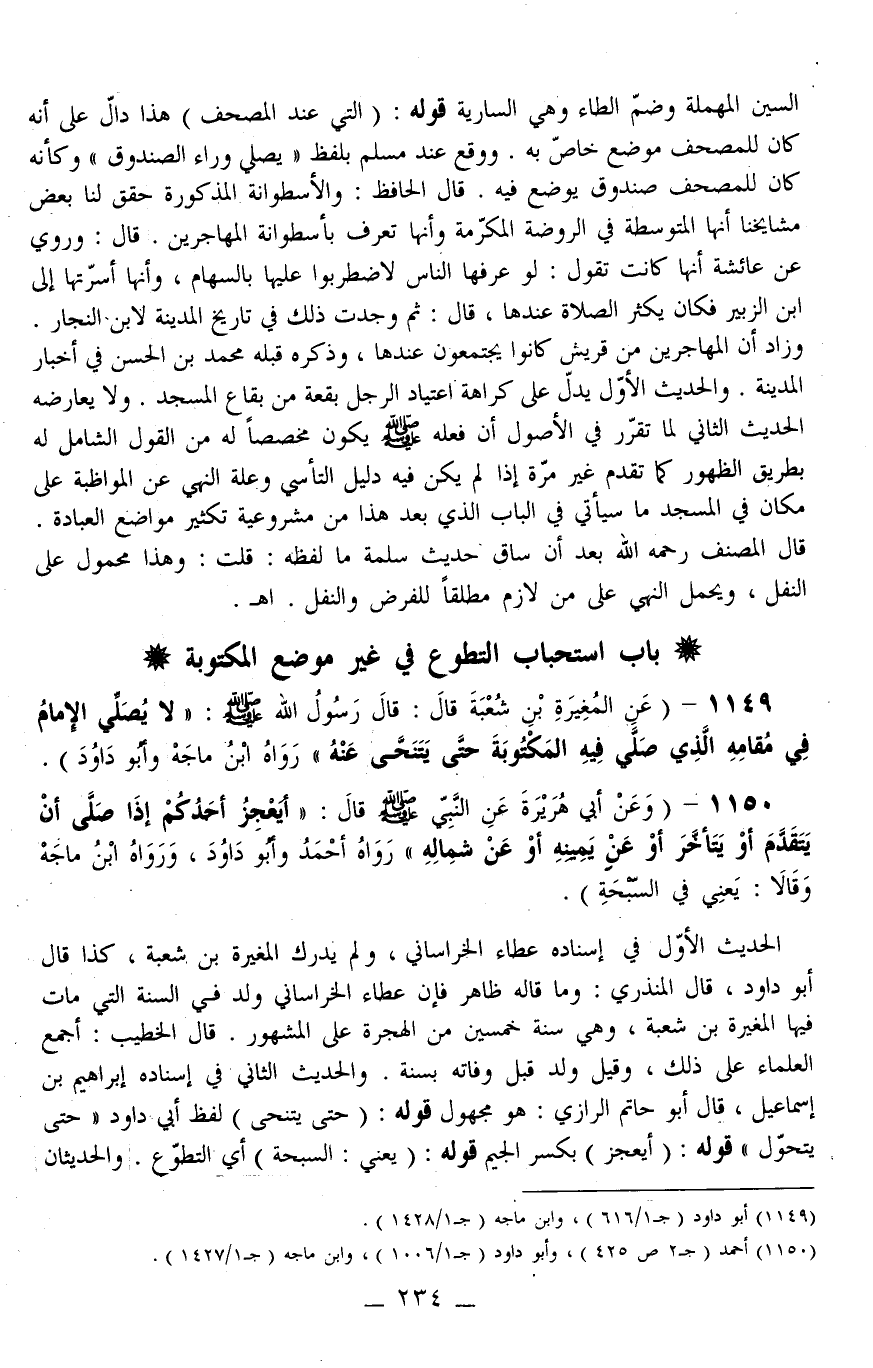 السين المهملة وضمّ الطاء وهي السارية قوله : ( التي عند المصحف ) هذا دالّ على أنه
كان للمصحف موضع خاصّ به . ووقع عند مسلم بلفظ « يصلي وراء الصندوق » وكأنه
كان للمصحف صندوق يوضع فيه . قال الحافظ : والأسطوانة المذكورة حقق لنا بعض
مشايخنا أنها المتوسطة في الروضة المكرّمة وأنها تعرف بأسطوانة المهاجرين . قال : وروي
عن عائشة أنها كانت تقول : لو عرفها الناس لاضطربوا عليها بالسهام ، وأنها أسرّتها إلى
ابن الزبير فكان يكثر الصلاة عندها ، قال : ثم وجدت ذلك في تاريخ المدينة لابن النجار .
وزاد أن المهاجرين من قريش كانوا يجتمعون عندها ، وذكره قبله محمد بن الحسن في أخبار
المدينة . والحديث الأوّل يدلّ على كراهة اعتياد الرجل بقعة من بقاع المسجد . ولا يعارضه
الحديث الثاني لما تقرّر في الأصول أن فعله ﷺ يكون مخصصاً له من القول الشامل له
بطريق الظهور كما تقدم غير مرّة إذا لم يكن فيه دليل التأسي وعلة النهي عن المواظبة على
مكان في المسجد ما سيأتي في الباب الذي بعد هذا من مشروعية تكثير مواضع العبادة .
قال المصنف رحمه الله بعد أن ساق حديث سلمة ما لفظه : قلت : وهذا محمول على
النفل ، ويحمل النهي على من لازم مطلقاً للفرض والنفل . اهـ .
باب استحباب التطوع في غير موضع المكتوبة
١١٤٩ – ( عَنِ المُغِيرَةِ بْنِ شُعْبَةَ قالَ : قالَ رَسُولُ الله ﷺ : « لا يُصَلِّي الإمامُ
فِي مُقامِهِ الَّذِي صَلَّي فِيهِ المَكْتُوبَةَ حتَّى يَتَنَحَّى عَنْهُ » رَوَاهُ ابْنُ ماجَهْ وأبُو دَاوُدَ ) .
١١٥٠ – ( وَعَنْ أبي هُرَيْرَةَ عَنِ النَّبِيّ ﷺ قالَ : « أيَعْجِزُ أحَدُكُمْ إذَا صَلَّى أنْ
يَتَقَدَّمَ أوْ يَتَأخَّرَ أوْ عَنْ يَمِينِهِ أوْ عَنْ شمالِهِ » رَوَاهُ أحْمَدُ وأبُو دَاوُدَ ، وَرَوَاهُ ابْنُ ماجَهْ
وَقَالَا : يَعنِي في السُّبْحَةِ ) .
الحديث الأوّل في إسناده عطاء الخراساني ، ولم يدرك المغيرة بن شعبة ، كذا قال
أبو داود ، قال المنذري : وما قاله ظاهر فإن عطاء الخراساني ولد في السنة التي مات
فيها المغيرة بن شعبة ، وهي سنة خمسين من الهجرة على المشهور . قال الخطيب : أجمع
العلماء على ذلك ، وقيل ولد قبل وفاته بسنة . والحديث الثاني في إسناده إبراهيم بن
إسماعيل ، قال أبو حاتم الرازي : هو مجهول قوله : ( حتى يتنحى ) لفظ أبي داود « حتى
يتحوّل » قوله : ( أيعجز ) بكسر الجيم قوله : ( يعني : السبحة ) أي التطوّع . والحديثان
(١١٤٩) أبو داود ( جـ٦١٦/١ ) ، وابن ماجه ( جـ١٤٢٨/١ ) .
(١١٥٠) أحمد ( جـ٢ ص ٤٢٥ ) ، وأبو داود ( جـ١٠٠٦/١ ) ، وابن ماجه ( جـ١٤٢٧/١ ) .
– ٢٣٤ –